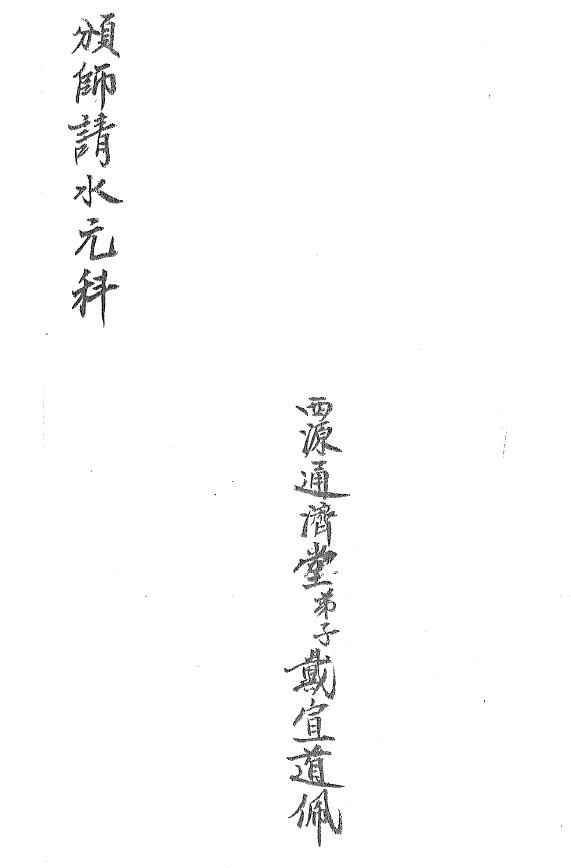 西源通濟堂弟子戴宣道佩
頒師請水元科